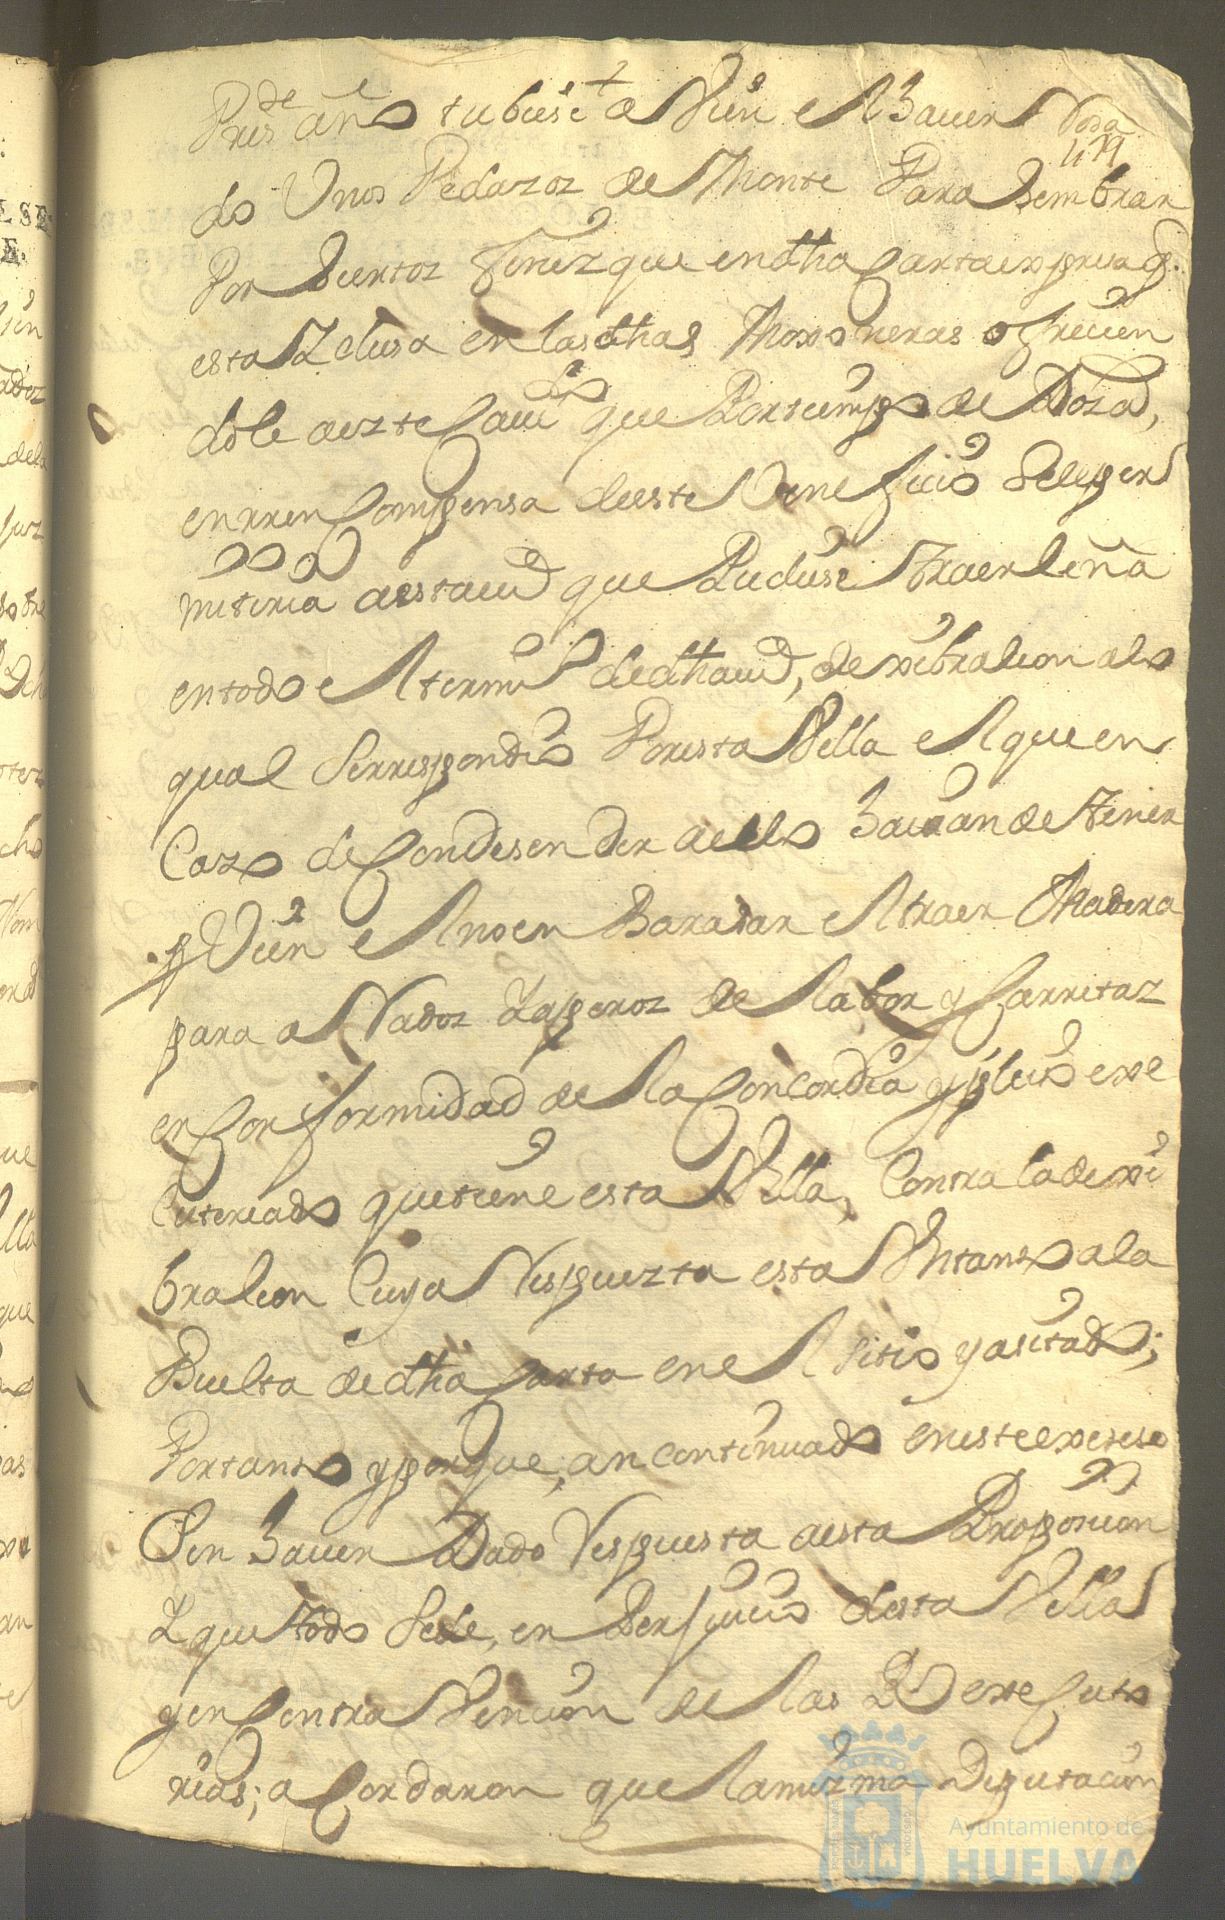 Pres.te año tubiese a Vien el Haver Roza
479
do Unos Pedazoz de Monte Para Sembrar
Por Siertoz finez que en dha Carta expresa q.
esta Ynclusa en las dhas Moxoneras ofrecien
dole a ezte Cauildo que Por tiempo de Roza,
en rrencompensa de este Veneficio Se le per
mitiria a esta ciud que Pudiese traer leña
en todo el termino de dha ciud, de xibraleon a lo
qual Se rrespondio Por esta Villa el que en
Cazo de Condesender a ello Hauian de tener
p Vien el no en Barasar el traer Madera
para aRados Y aperoz de la bor y Carretaz
en Conformidad de la Concordia y pleito exe
Cutoriado que tiene esta Villa, Contra la de xi
braleon Cuya Respuezta esta Yntanto a la
Buelta de dha Carta en el Sitio ya sitado;
Por tanto y porque, an continuado en este exseso
Sin Haver Dado Respuesta a esta Proposicion
Y que todo Sede, en Perjuicio desta Villa
y en Contra Vencion de las Rs exeCuto
rias; aCordaron que la mizma Diputacion
Ayuntamiento de
HUELVA